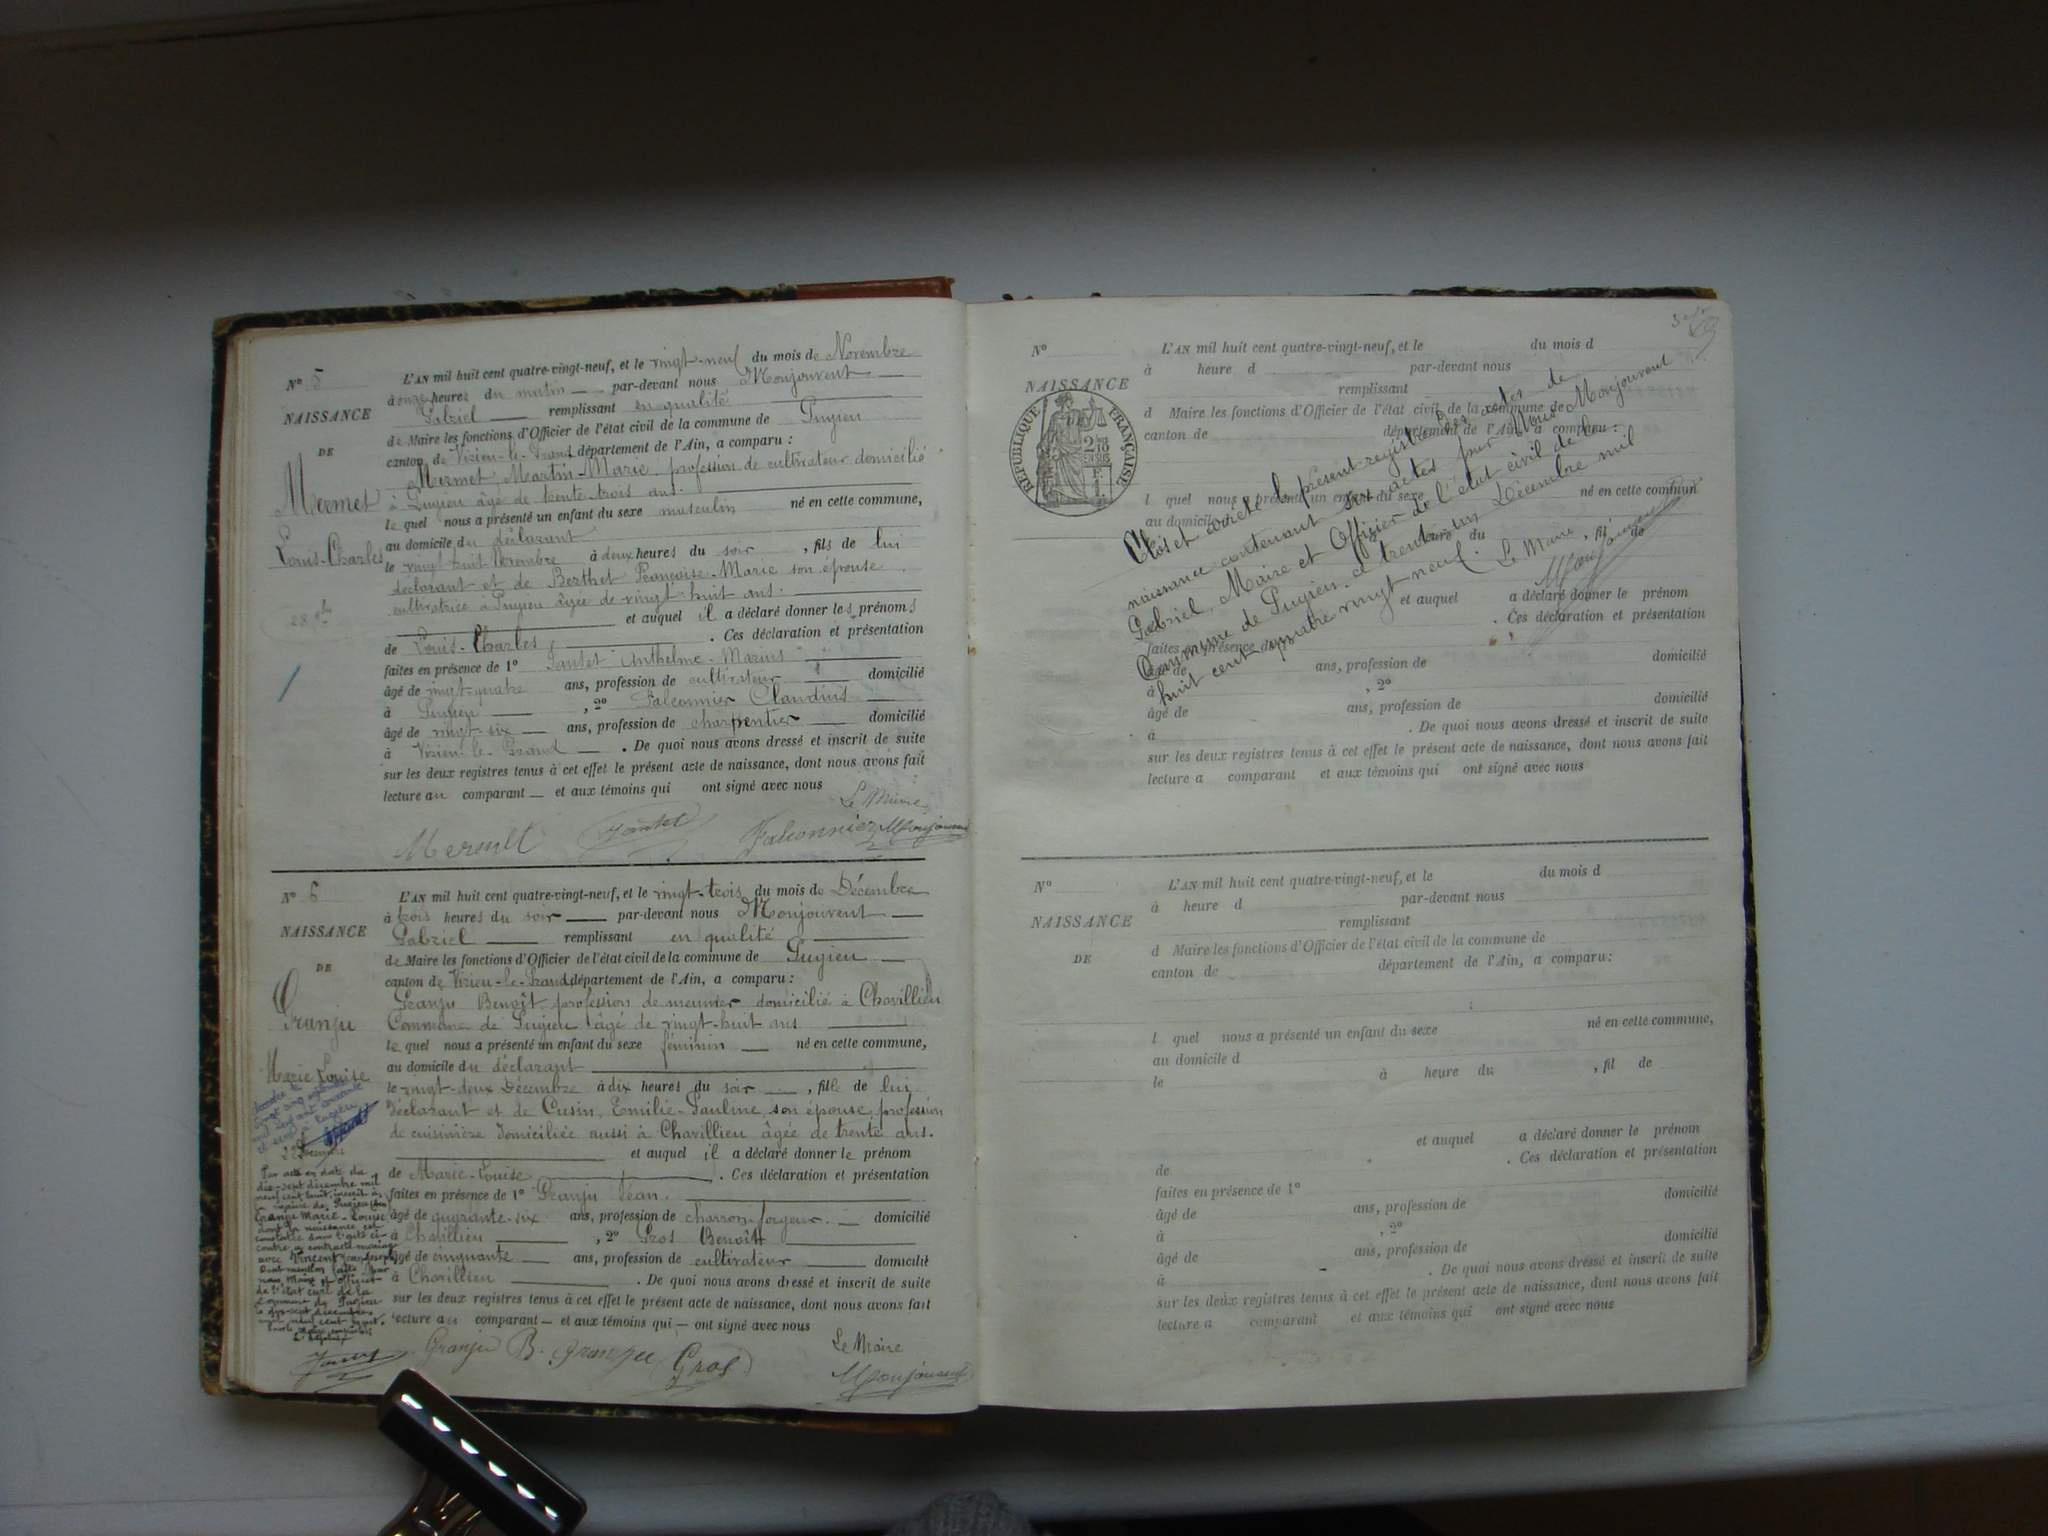 N° 5
NAISSANCE
DE
Mermet
Louis-Charles
28 9bre
L'AN mil huit cent quatre-vingt-neuf, et le vingt-neuf du mois de Novembre
à onze heures du matin — par-devant nous Monjouvent —
Gabriel — remplissant en qualité
de Maire les fonctions d'Officier de l'état civil de la commune de Pugieu
canton de Virieu-le-Grand département de l'Ain, a comparu :
Mermet, Martin-Marie, profession de cultivateur domicilié
à Pugieu âgé de trente-trois ans.
lequel nous a présenté un enfant du sexe masculin né en cette commune,
au domicile du déclarant
le vingt huit Novembre à deux heures du soir , fils de lui
déclarant et de Berthet Françoise-Marie son épouse
cultivatrice à Pugieu âgée de vingt-huit ans.
et auquel il a déclaré donner les prénoms
de Louis-Charles, . Ces déclaration et présentation
faites en présence de 1° Jantet Anthelme-Marius
âgé de vingt-quatre ans, profession de cultivateur domicilié
à Pugieu — , 2° Falconnier Claudius
âgé de vingt-six — ans, profession de charpentier — domicilié
à Virieu-le-Grand — . De quoi nous avons dressé et inscrit de suite
sur les deux registres tenus à cet effet le présent acte de naissance, dont nous avons fait
lecture au comparant — et aux témoins qui ont signé avec nous
Le Maire
Jantet Falconnier Monjouvent
N° 6
NAISSANCE
DE
Granju
Marie Louise
22 Décembre
Par acte en date du
dix-sept décembre mil
neuf cent huit, inscrit à
la mairie de Pugieu (Ain)
Granju Marie-Louise
dont la naissance est
constatée dans l'acte ci-
contre a contracté mariage
avec Vincent Jean Joseph
Dont mention faite par
nous, Maire et officier
de l'état civil de la
Commune de Pugieu
le dix-sept décembre
mil neuf cent huit.
L'AN mil huit cent quatre-vingt-neuf, et le vingt-trois du mois de Décembre
à trois heures du soir — par-devant nous Monjouvent —
Gabriel — remplissant en qualité
de Maire les fonctions d'Officier de l'état civil de la commune de Pugieu —
canton de Virieu-le-Grand département de l'Ain, a comparu :
Granju Benoît profession de meunier domicilié à Chavillieu
Commune de Pugieu âgé de vingt-huit ans
lequel nous a présenté un enfant du sexe féminin — né en cette commune,
au domicile du déclarant
le vingt-deux Décembre à dix heures du soir — , fille de lui
déclarant et de Cusin, Emilie-Pauline, son épouse, profession
de cuisinière domiciliée aussi à Chavillieu âgée de trente ans.
et auquel il a déclaré donner le prénom
de Marie-Louise . Ces déclaration et présentation
faites en présence de 1° Granju Jean.
âgé de quarante-six ans, profession de charron-forgeur. — domicilié
à Chavillieu , 2° Gros Benoît
âgé de cinquante — ans, profession de cultivateur — domicilié
à Chavillieu . De quoi nous avons dressé et inscrit de suite
sur les deux registres tenus à cet effet le présent acte de naissance, dont nous avons fait
lecture au comparant — et aux témoins qui — ont signé avec nous
Le Maire
Granju B. granju Gros Monjouvent
N°
NAISSANCE
DE
RÉPUBLIQUE FRANÇAISE
L'AN mil huit cent quatre-vingt-neuf, et le du mois d
à heure d par-devant nous
remplissant
d Maire les fonctions d'Officier de l'état civil de la commune de
canton de département de l'Ain, a comparu :
l quel nous a présenté un enfant du sexe né en cette commun
au domicile
heure du , fil de
et auquel a déclaré donner le prénom
. Ces déclaration et présentation
faites en présence de 1°
âgé de ans, profession de domicilié
à , 2°
âgé de ans, profession de domicilié
à . De quoi nous avons dressé et inscrit de suite
sur les deux registres tenus à cet effet le présent acte de naissance, dont nous avons fait
lecture a comparant et aux témoins qui ont signé avec nous
Clos et arrêté le présent registre des actes de
naissance contenant six actes par Nous Monjouvent
Gabriel, Maire et Officier de l'état civil de la
Commune de Pugieu, ce trente un Décembre mil
huit cent quatre vingt neuf. Le Maire,
Monjouvent
N°
NAISSANCE
DE
L'AN mil huit cent quatre-vingt-neuf, et le du mois d
à heure d par-devant nous
remplissant
d Maire les fonctions d'Officier de l'état civil de la commune de
canton de département de l'Ain, a comparu :
l quel nous a présenté un enfant du sexe né en cette commune,
au domicile d
le à heure du , fil de
et auquel a déclaré donner le prénom
de . Ces déclaration et présentation
faites en présence de 1°
âgé de ans, profession de domicilié
à , 2°
âgé de ans, profession de domicilié
à . De quoi nous avons dressé et inscrit de suite
sur les deux registres tenus à cet effet le présent acte de naissance, dont nous avons fait
lecture a comparant et aux témoins qui ont signé avec nous